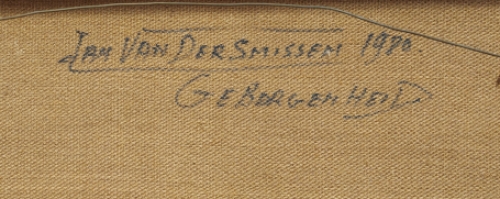 JAN VAN DER SMISSEN 1980.
GEBORGENHEID